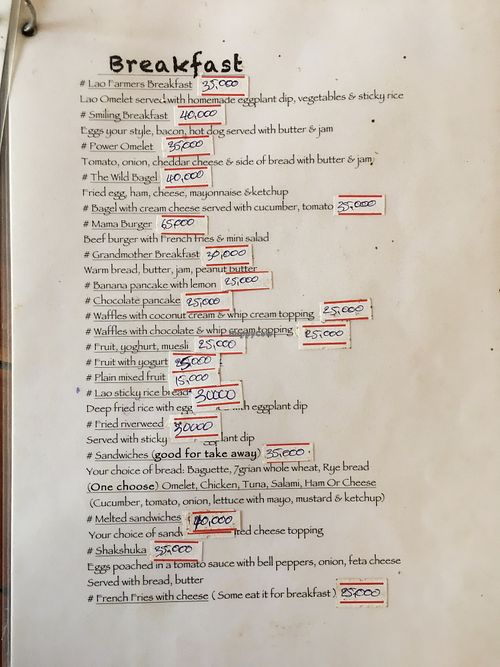 Breakfast
# Lao Farmers Breakfast 35,000
Lao Omelet served with homemade eggplant dip, vegetables & sticky rice
# Smiling Breakfast 40,000
Eggs your style, bacon, hot dog served with butter & jam
# Power Omelet 35,000
Tomato, onion, cheddar cheese & side of bread with butter & jam
# The Wild Bagel 40,000
Fried egg, ham, cheese, mayonnaise &ketchup
# Bagel with cream cheese served with cucumber, tomato 35,000
# Mama Burger 65,000
Beef burger with French fries & mini salad
# Grandmother Breakfast 30,000
Warm bread, butter, jam, peanut butter
# Banana pancake with lemon 25,000
# Chocolate pancake 25,000
# Waffles with coconut cream & whip cream topping 25,000
# Waffles with chocolate & whip cream topping 25,000
# Fruit, yoghurt, muesli 25,000
# Fruit with yogurt 25,000
# Plain mixed fruit 15,000
# Lao sticky rice bread 30000
Deep fried rice with egg eggplant dip
# Fried riverweed 30000
Served with sticky dip
# Sandwiches (good for take away) 35,000
Your choice of bread: Baguette, 7grian whole wheat, Rye bread
(One choose) Omelet, Chicken, Tuna, Salami, Ham Or Cheese
(Cucumber, tomato, onion, lettuce with mayo, mustard & ketchup)
# Melted sandwiches 40,000
Your choice of cheese topping
# Shakshuka 35,000
Eggs poached in a tomato sauce with bell peppers, onion, feta cheese
Served with bread, butter
# French Fries with cheese ( Some eat it for breakfast ) 25,000